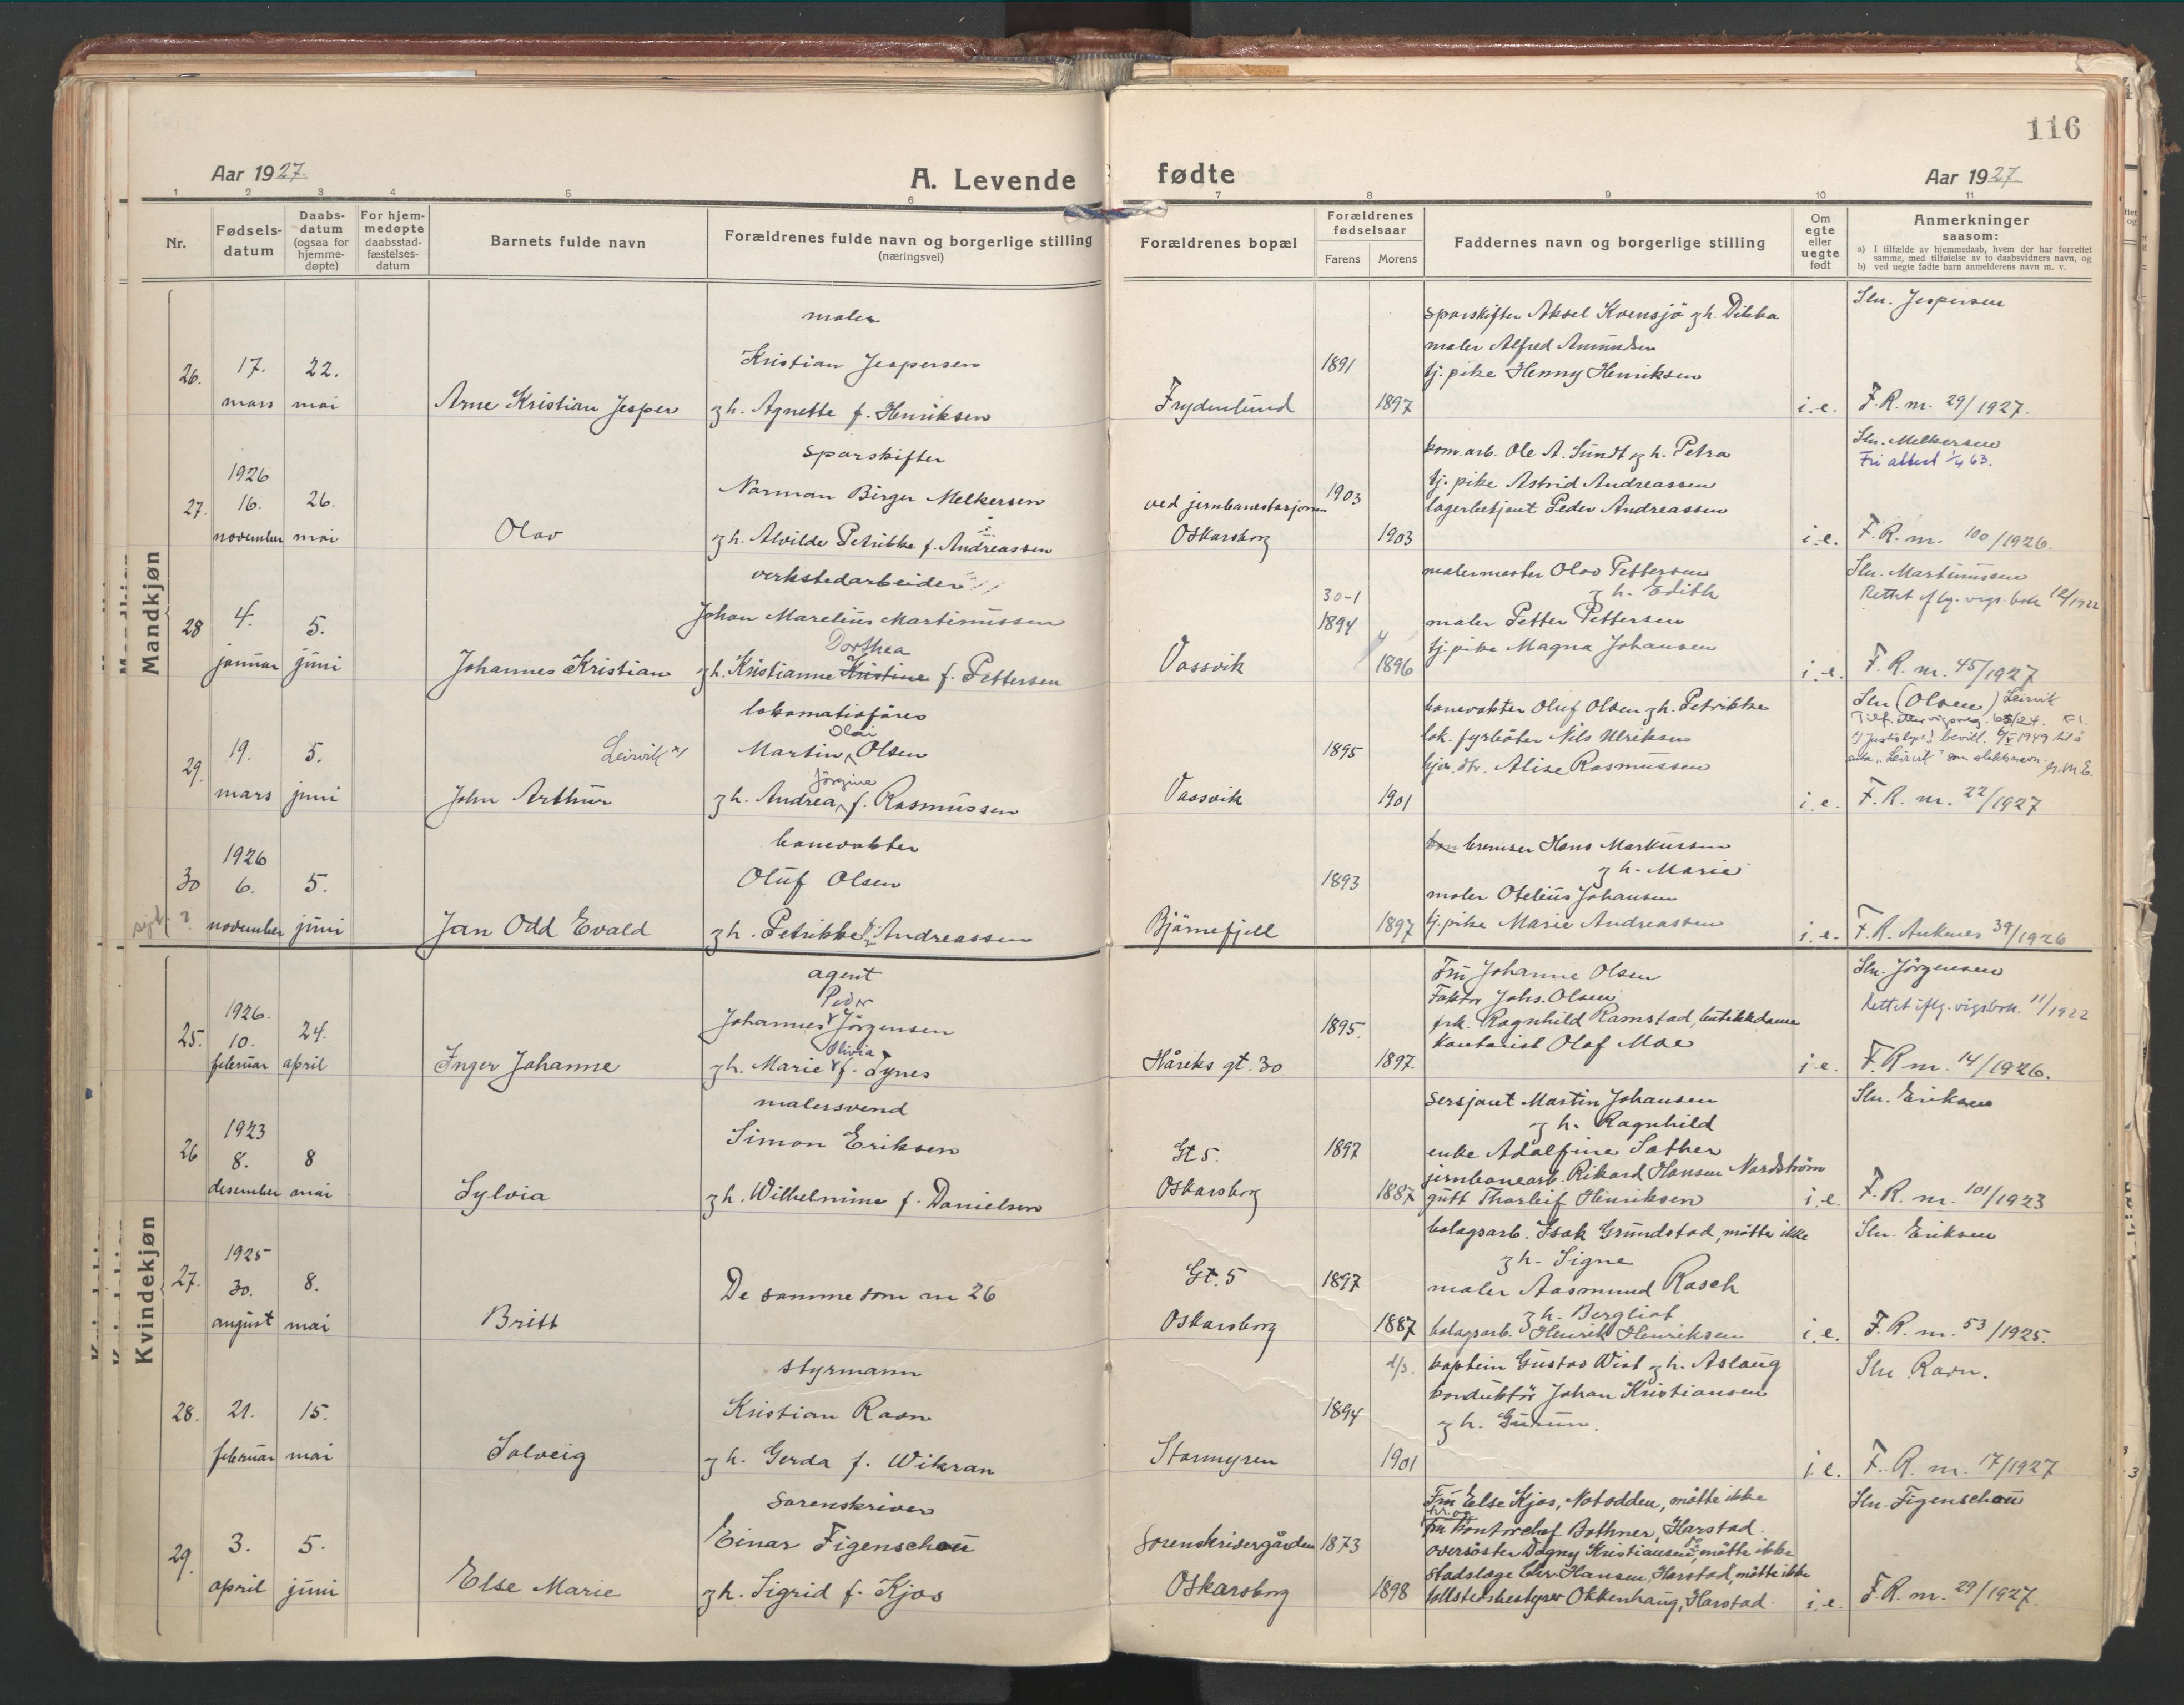 116
Aar 1927.
A. Levende fødte
Aar 1927
1 2 3 4 5 6 7 8 9 10 11
Nr.
Fødsels-
datum
Daabs-
datum
(ogsaa for
hjemme-
døpte)
For hjem-
medøpte
daabsstad-
fæstelses-
datum
Barnets fulde navn
Forældrenes fulde navn og borgerlige stilling
(næringsvei)
Forældrenes bopæl
Forældrenes
fødselsaar
Farens
Morens
Faddernes navn og borgerlige stilling
Om
egte
eller
uegte
født
Anmerkninger
saasom:
a) I tilfælde av hjemmedaab, hvem der har forrettet
samme, med tilføielse av to daabsvidners navn, og
b) ved uegte fødte barn anmelderens navn m. v.
Mandkjøn
26.
17.
mars
22.
mai
Arne Kristian Jesper
maler
Kristian Jespersen
og h. Agnette f. Henriksen
Frydenlund
1891
1897
sporskifter Aksel Kvensjö og h. Dikka
maler Alfred Amundsen
tj. pike Henny Henriksen
i.e.
Sln. Jespersen
F.R. nr. 29/1927.
27.
1926
16.
november
26.
mai
Olav
sporskifter
Norman Birger Melkersen
og h. Alvilde Petrikke f. Andreassen
ved jernbanestasjonen
Oskarsborg
1903
1903
kom. arb. Ole A. Sundt og h. Petra
tj. pike Astrid Andreassen
lagerbetjent Peder Andreassen
i.e.
Sln. Melkersen
Fri attest 1/4 63.
F.R. nr. 100/1926.
28
4.
januar
5.
juni
Johannes Kristian
verkstedarbeider
Johan Marelius Martinussen
Dorthea
og h. Kristianne Kristine f. Pettersen
Vassvik
30-1
1894
1896
malermester Olav Pettersen
og h. Edith
maler Petter Pettersen
tj. pike Magna Johansen
i.e.
Sln. Martinussen
Rettet iflg. vigs. bok 12/1922
F.R. nr. 45/1927
29.
19.
mars
5.
juni
Leirvik x)
John Arthur
lokomotivfører
Olai
Martin Olsen
Jörgine
og h. Andrea f. Rasmussen
Vassvik
1895
1901
banevokter Oluf Olsen og h. Petrikke
lok. fyrböter Nils Ulriksen
hjv. dtr. Alise Rasmussen
i.e.
Sln (Olsen) Leirvik
x) Justisdept.s bevill. 6/5 1949 til å
anta "Leirvik" som slektsnavn. M.E.
F.R. nr. 22/1927
30
1926
6.
november
5.
juni
Jan Odd Evald
banevokter
Oluf Olsen
og h. Petrikke f. Andreassen
Bjørnefjell
1893
1897
bremser Hans Markussen
og h. Marie
maler Otelius Johansen
tj. pike Marie Andreassen
i.e.
F.R. Ankenes 39/1926
Kvindekjøn
25.
1926.
10.
februar
24.
april
Inger Johanne
agent
Peder
Johannes Jörgensen
Olivia
og h. Marie f. Tynes
Håreks gt. 30
1895.
1897.
Fru Johanne Olsen
Faktor Johs. Olsen
frk. Ragnhild Ramstad, butikkdame
kontorist Olaf Moe
i.e.
Sln. Jörgensen
Rettet iflg. vigsbok. 11/1922
F.R. nr. 14/1926.
26
1923
8.
desember
8
mai
Sylvia
malersvend
Simon Eriksen
og h. Wilhelmine f. Danielsen
Gt 5.
Oskarsborg
1897
1887
sersjant Martin Johansen
og h. Ragnhild
enke Adolfine Sather
jernbanearb. Rikard Hansen Nordström
gutt Thorleif Henriksen
i.e.
Sln. Eriksen
F.R. nr. 101/1923
27.
1925
30.
august
8.
mai
Britt
De samme som nr 26
Gt. 5
Oskarsborg
1897
1887
bolagsarb. Isak Grundstad, mötte ikke
og h. Signe
maler Aasmund Rasch
og h. Bergliot
bolagsarb. Henrik Henriksen
i.e.
Sln. Eriksen
F.R. nr. 53/1925.
28.
21.
februar
15.
mai
Solveig
styrmann
Kristian Ravn
og h. Gerda f. Wikran
Stormyren
1894
1901
d/s. kaptein Gustav Wist og h. Aslaug
konduktör Johan Kristiansen
og h. Gudrun.
i.e.
Sln Ravn.
F.R. nr. 17/1927
29.
3.
april
5.
juni
Else Marie
Sorenskriver
Einar Figenschou
og h. Sigrid f. Kjos
Sorenskrivergården
Oskarsborg
1873
1898
Fru Else Kjos, Notodden, mötte ikke
hr. og
fru kontorchef Bothner, Harstad.
oversöster Dagny Kristiansen, mötte ikke
Stadslæge Chr. Hansen, Harstad, mötte ikke
tollstedsbestyrer Okkenhaug, Harstad.
i.e.
Sln. Figenschou
F.R. nr. 29/1927.